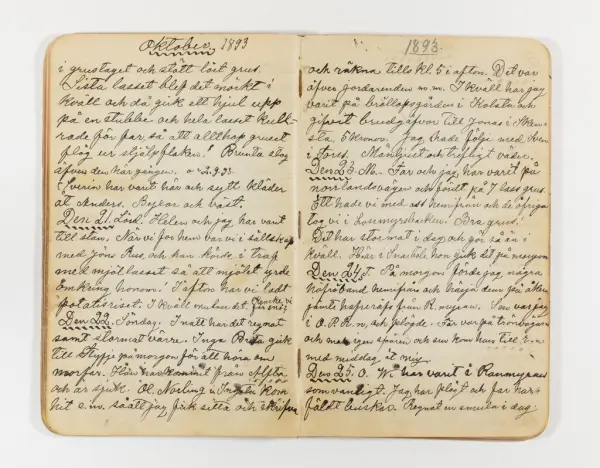 Oktober, 1893
i grustaget och stött löst grus.
Sista lasset blef det mörkt i
kväll och då gick ett hjul upp
på en stubbe och hela lasset kull-
rade för far så att allthop gruset
flög ur stjälpflaken! Brunta slog
äfven den här gången.
Everin har varit här och sytt kläder
åt Anders. Byxor och väst.
Den 21. Lörd. Helen och jag har varit
till stan. När vi for hem var vi i sällskap
med Jöns Rus, och han körde i traf
med mjöllasset så att mjölet yrde
Omkring honom! I afton har vi ladt
potatisriset. I kväll mulnar det.
Den 22. Söndag. I natt har det regnat
samt stormat värre. Inga Brita gick
till på morgon för att höra om
morfar. Hon kommit från
och är sjuk. Ol. Norling kom
hit e.m. så att jag fick sitta och skrifva
1893.
och räkna till kl. 5 i afton. Det var
äfver jordärenden m.m. I kväll har jag
varit på bröllopsgården i Kolsta och
gifvit brudgåfvor till Jonas i
sta, 5 kronor. Jag hade följe med Sven
i Torss. Månljust och trefligt väder.
Den 23 M. Far och jag har varit på
norrlandsvägen och fördt på 7 lass grus.
Ett hade vi med oss hemifrån och de öfriga
tog vi i Losmyrsbacken. Bra grus!
Det har stormat i dag och gör så än i
kväll. Här i hon gick det på morgon
Den 24 T. På morgon förde jag några
hafröband hemifrån och hässja dem på åkern
jämte hafreräfs från R.myran. Sen var jag
i O.R.R.n, och plöjde. Far var på trönbågen
och igen spåren och sen kom han till R.n
med middag åt mig
Den 25 O. Vi har varit i Ranmyran
som vanligt. Jag har plöjt och far har
fäldt buskar. Regnat en smula i dag.